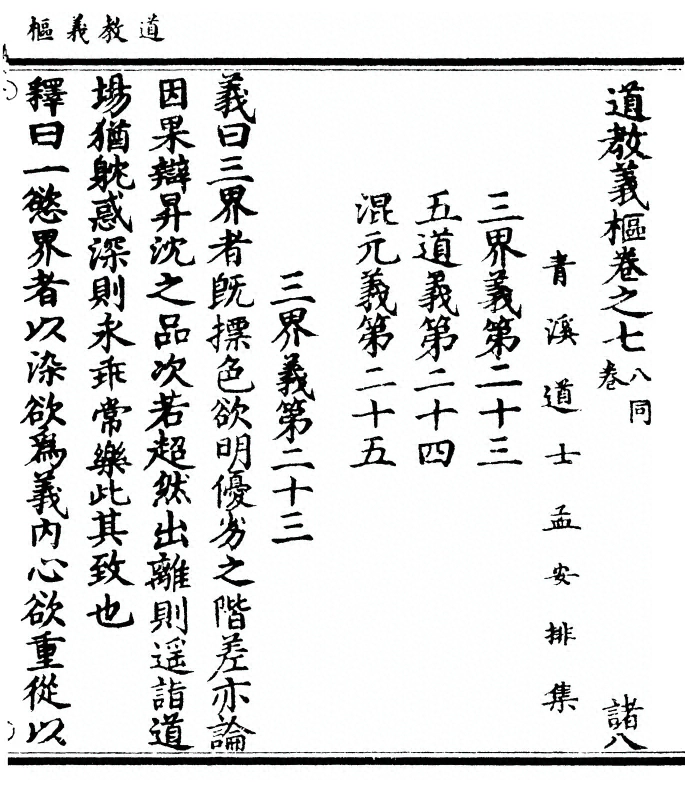 道教義樞
道教義樞卷之七 八同卷 諸八
青溪道士孟安排集
三界義第二十三
五道義第二十四
混元義第二十五
三界義第二十三
義曰三界者旣摽色欲明優劣之階差亦論
因果辯昇沈之品次若超然出離則遥詣道
場猶躭惑深則永乖常樂此其致也
釋曰一慾界者以染欲爲義內心欲重從以